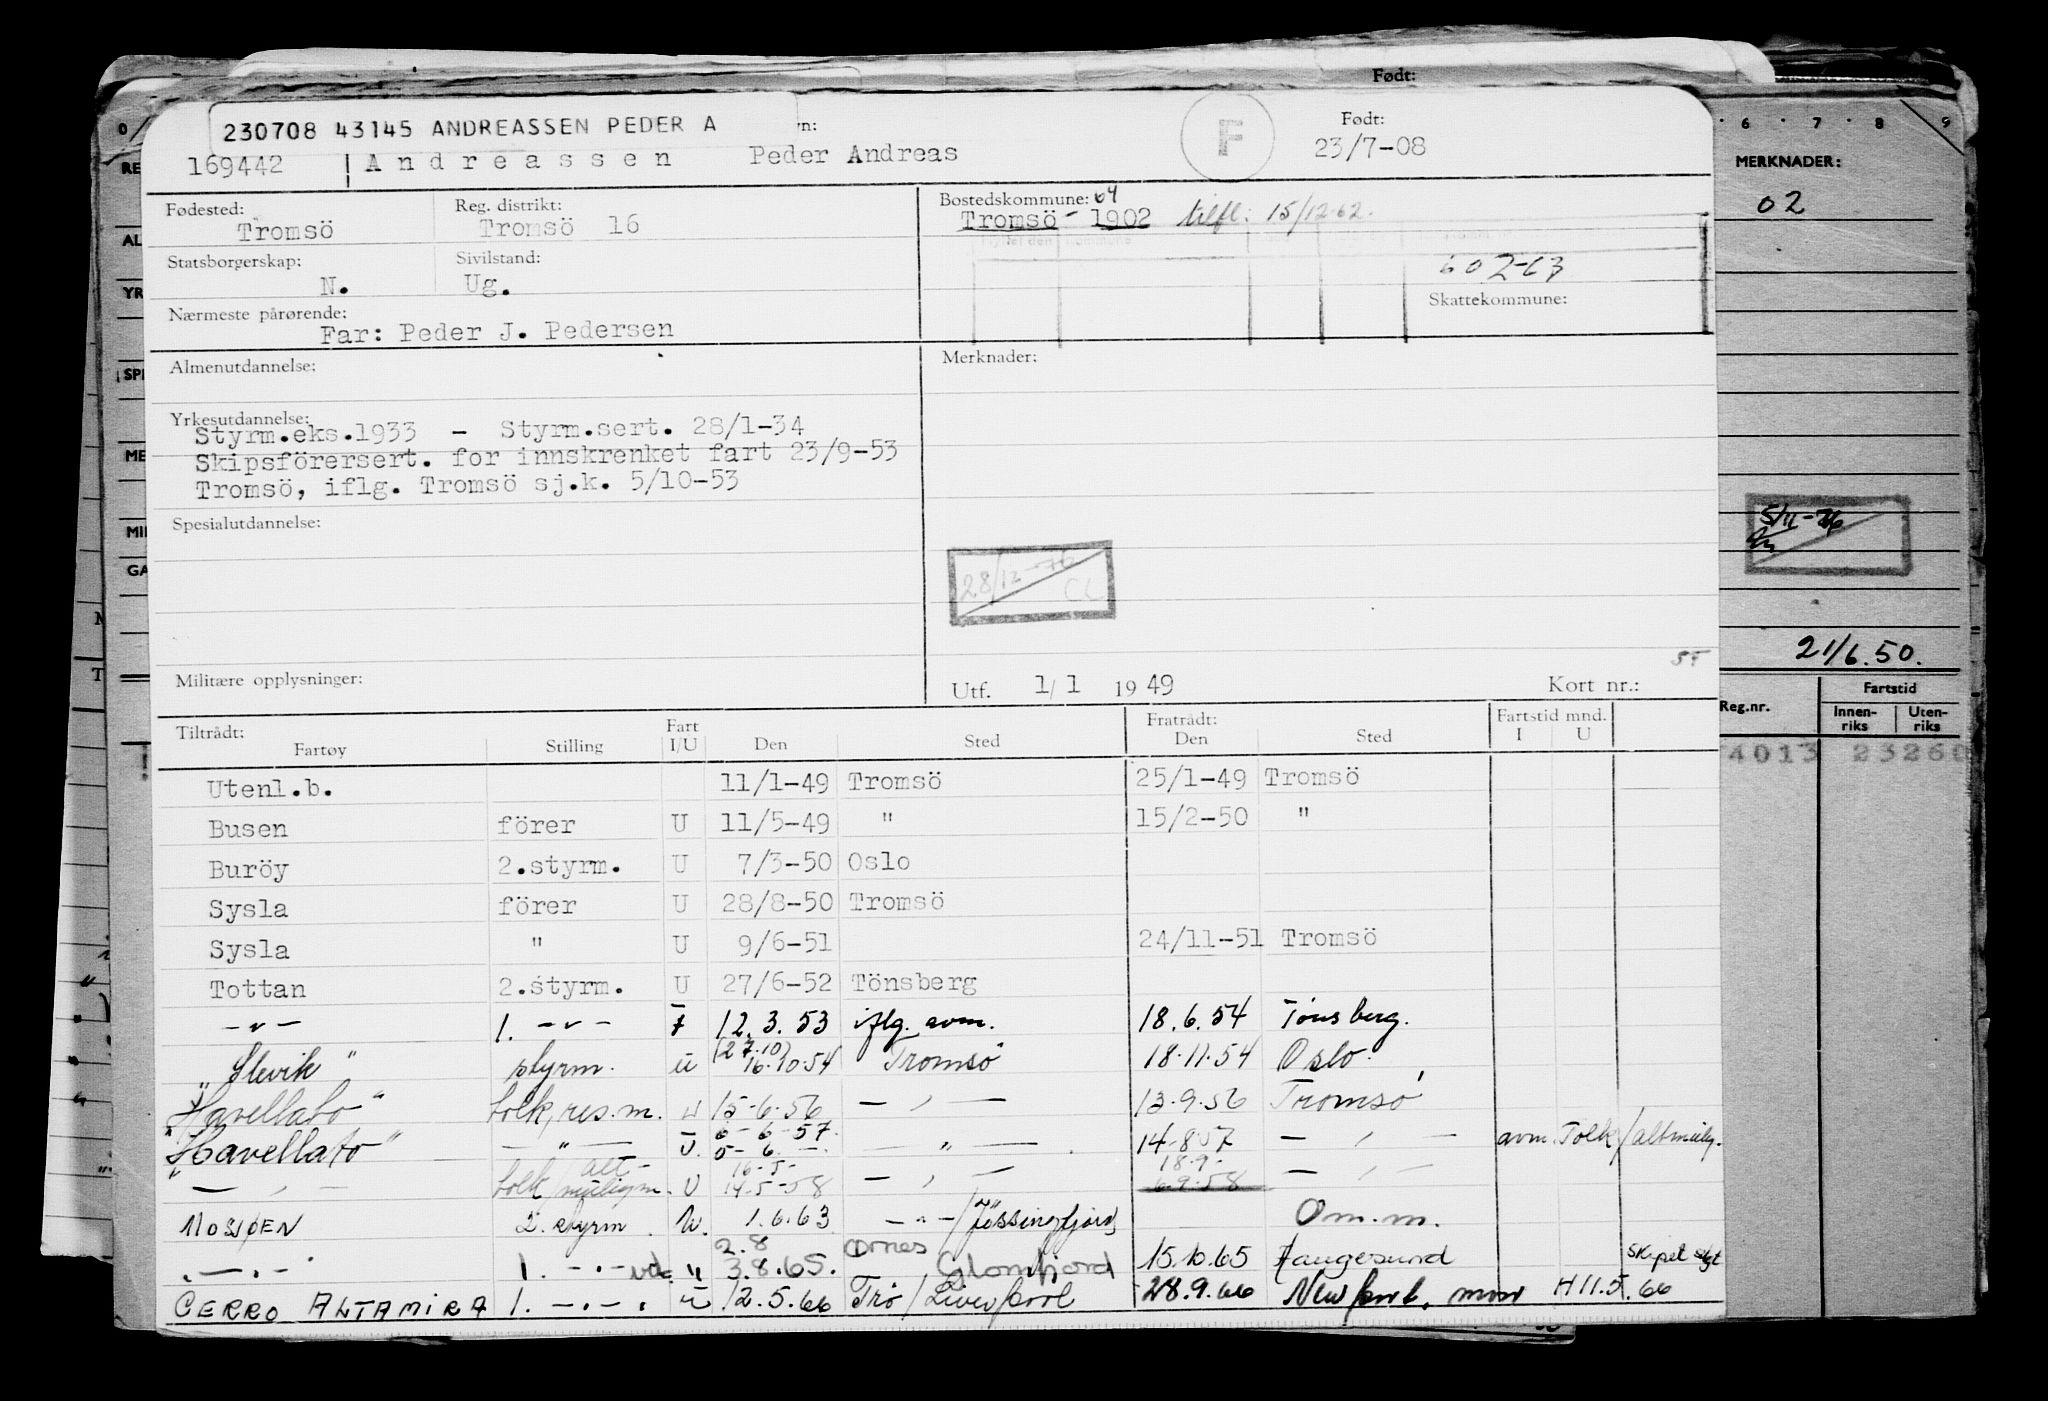 Født:
230708 43145 ANDREASSEN PEDER A
169442 Andreassen Peder Andreas
F
Født:
23/7-08
Fødested:
Tromsö
Reg. distrikt:
Tromsö 16
Bostedskommune: 04
Tromsö - 1902 tilfl: 15/12-62.
Statsborgerskap:
N.
Sivilstand:
Ug.
602-63
Skattekommune:
Nærmeste pårørende:
Far: Peder J. Pedersen
Almenutdannelse:
Merknader:
Yrkesutdannelse:
Styrm.eks.1933 - Styrm.sert. 28/1-34
Skipsförersert. for innskrenket fart 23/9-53
Tromsö, iflg. Tromsö sj.k. 5/10-53
Spesialutdannelse:
28/12-76
CL
Militære opplysninger:
Utf. 1/1 1949
Kort nr.:
Tiltrådt:
Fartøy Stilling Fart I/U Den Sted
Fratrådt:
Den Sted
Fartstid mnd.
I U
Utenl.b. 11/1-49 Tromsö 25/1-49 Tromsö
Busen förer U 11/5-49 " 15/2-50 "
Buröy 2.styrm. U 7/3-50 Oslo
Sysla förer U 28/8-50 Tromsö
Sysla " U 9/6-51 24/11-51 Tromsö
Tottan 2.styrm. U 27/6-52 Tönsberg
-"- 1. -"- 12.3.53 iflg. avm. 18.6.54 Tönsberg.
(27.10)
"Slevik" styrm. u 16.10.54 Tromsö 18.11.54 Oslo.
"Havellabo" tolk, res.m. U 15-6-56 — " — 13.9.56 Tromsö
6-6-57.
"Havellato" — " — U. 5-6- — " — 14-8-57 — " — avm. Tolk/altmulig.
alt- 16-5- 18.9-
— " — tolk/muligm. U 14-5-58 — " — 6.9.58 — " —
MOSJØEN 2. styrm. U. 1.6.63 -"-/Jössingfjord Om.m.
2.8 Ørnes
-"- 1. -"- " 3.8.65. Glomfjord 15.10.65 Haugesund Skipet solgt
CERRO ALTAMIRA 1. -"- U 12.5.66 Trö/Liverpool 28.9.66 Newport, mon H 11.5.66
6 7 8 9
MERKNADER:
02
5/11-76
21/6.50.
Reg.nr.
Fartstid
Innen-riks
Uten-riks
4013 23260